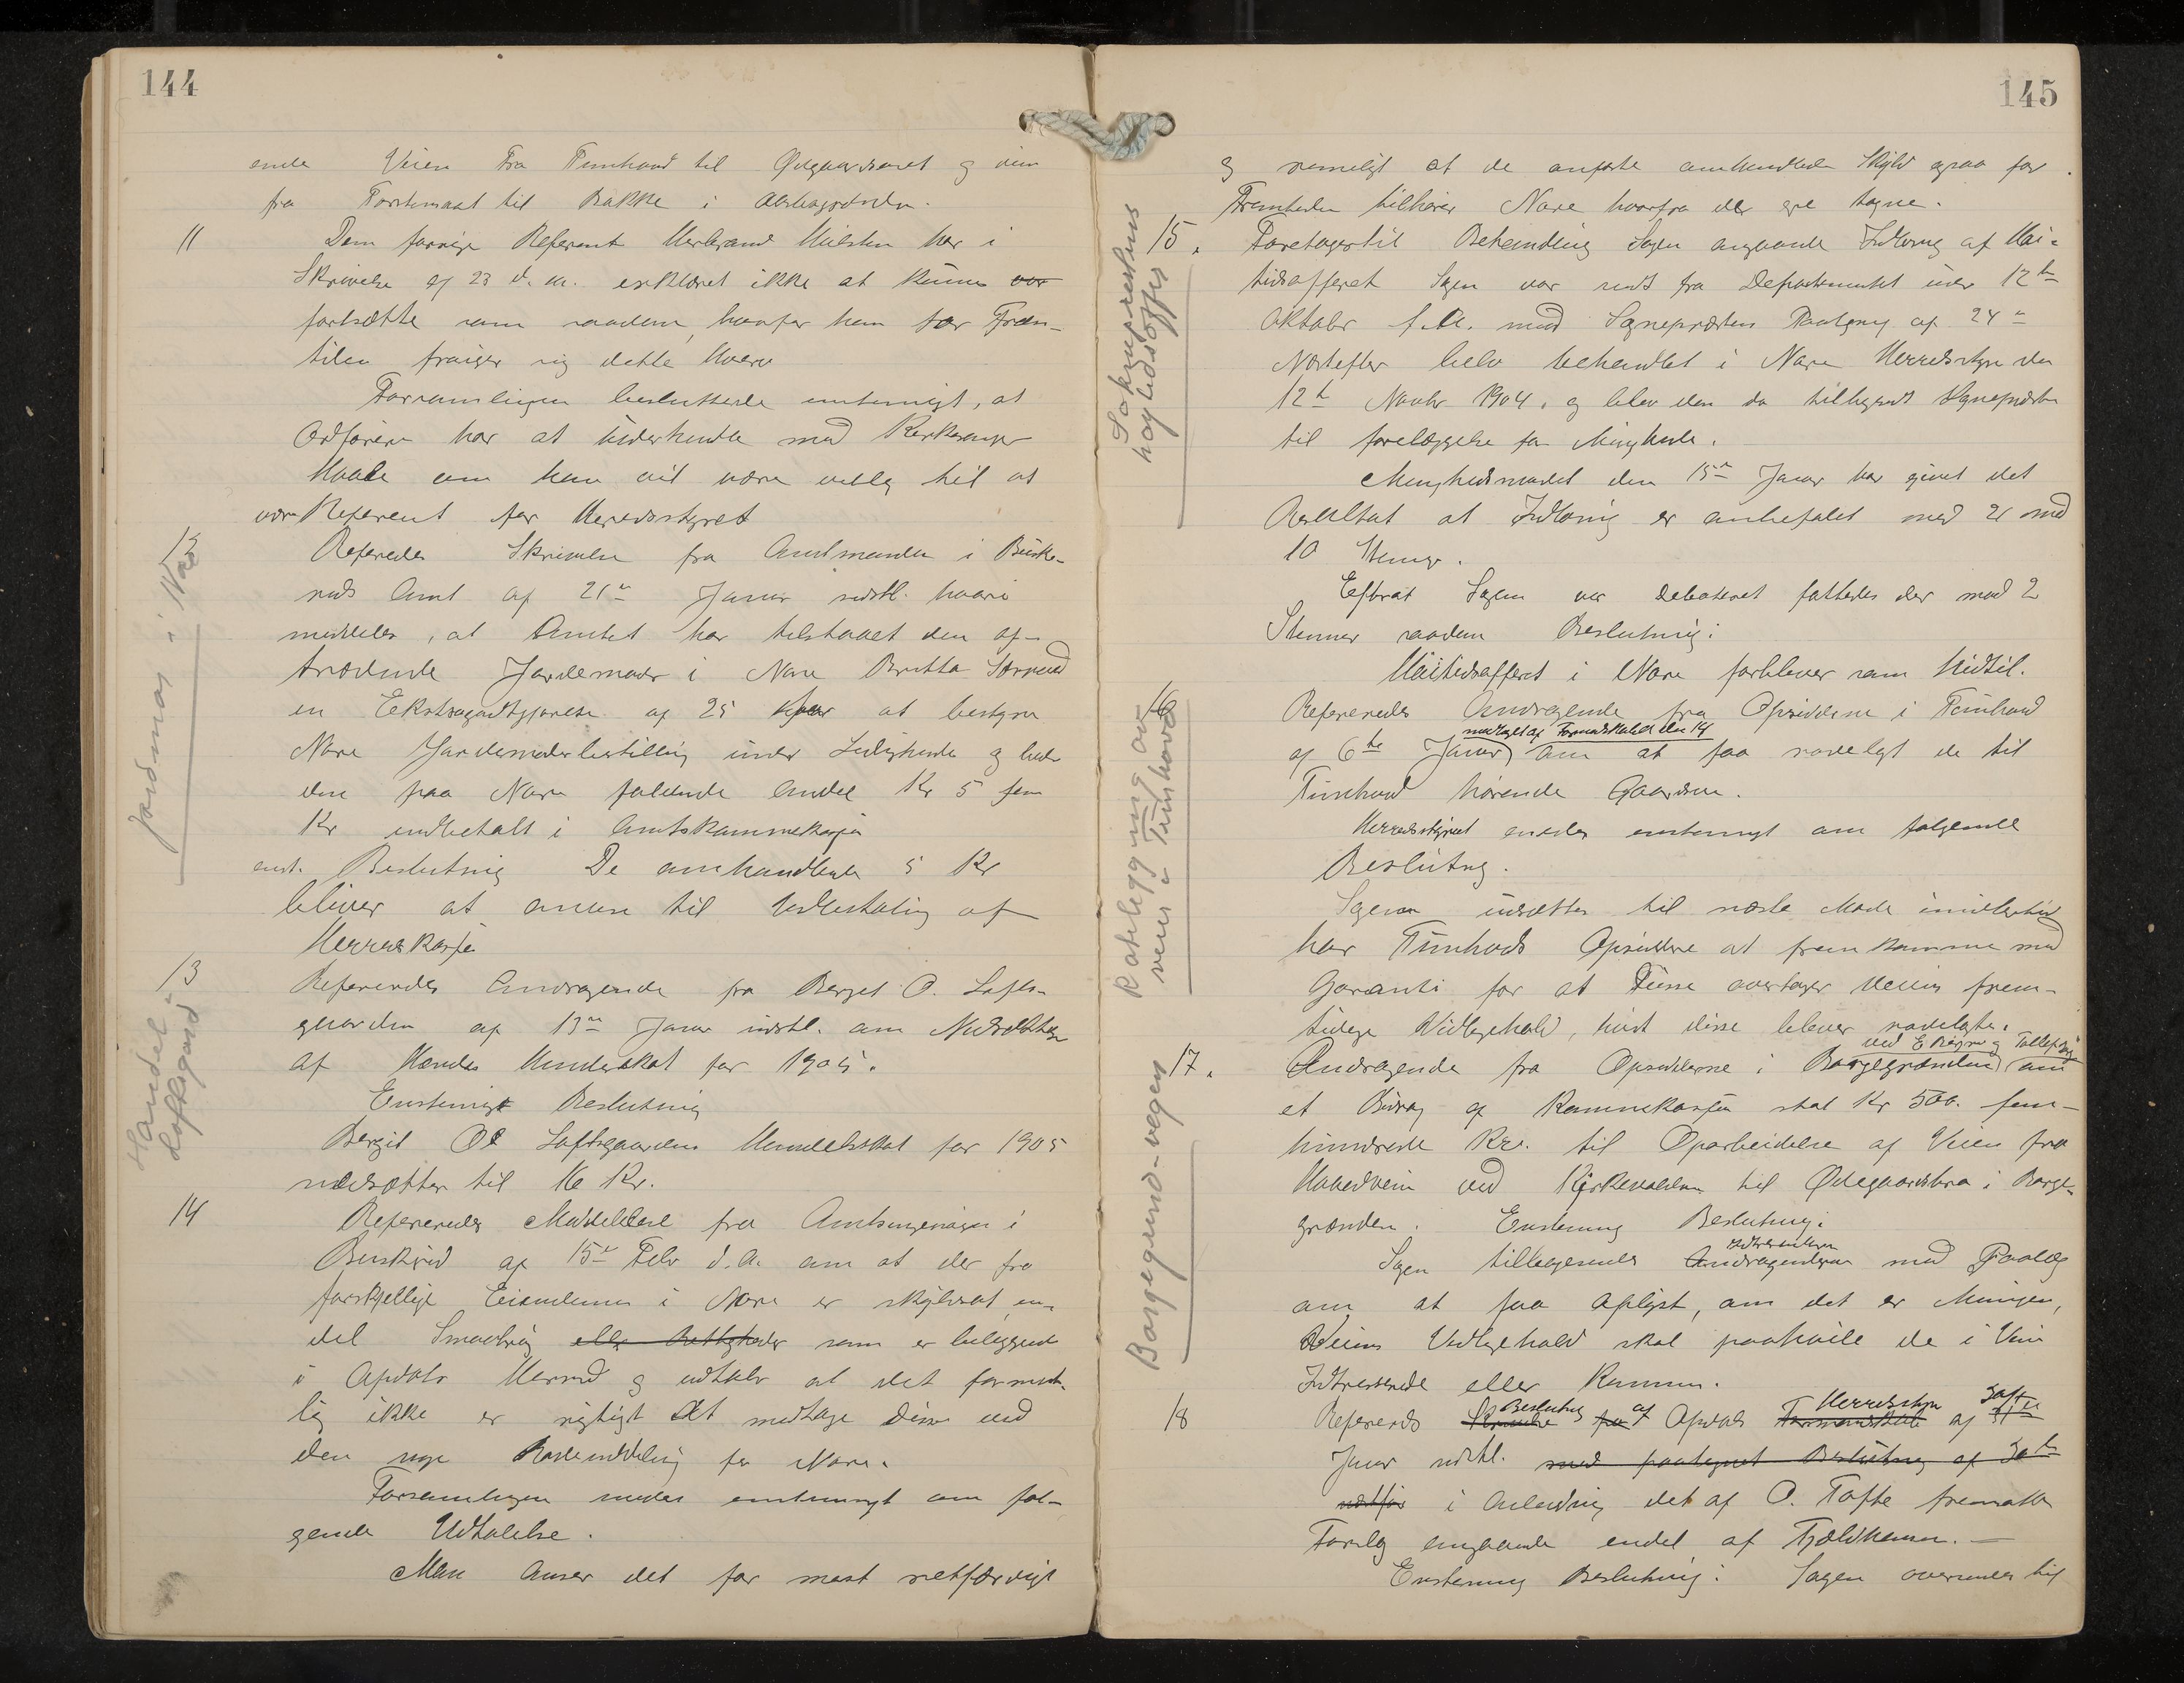 144
ende Veien fra Tunhovd til Ødegaardsaret og vein
fra Torstenaas til Bakke i
11
Den forrige Referent Herbrand Nilsen har i
Skrivelse af 23 d. m. erklæret ikke at kunne
fortsætte som saadan, hvorfor han for Frem-
tiden fraiger sig dette Hverv
Forsamlingen besluttede enstemigt, at
Ordføren har at underhandle med Kirkesanger
om han vil være villig til at
være Referent for Heredsstyret
12
Jordmor i Nore
Refereredes Skrivelse fra Amtmanden i Buske-
ruds Amt af 21de Januar sidstl. hvori
meddeles, at Amtet har tilstaaet den af-
trædende Jordemoder i Nore Britta
en Ekstragodtgjørelse af 25 Kroner at bestyre
Nore Jordemoderbestilling under Ledighede og bedes
den paa Nore faldende Andel Kr 5 fem
Kr indbetalt i Amtskommunekassen
enst. Beslutning De omhandlende 5 Kr
bliver at anvise til Udbetaling af
Herredskassen
13
Handel i Loftsgard
Refereredes Andragende fra Bergit O. Lofts-
gaarden af 13de Januar sidstl. om Nedsættelse
af Hendes Handelsskat for 1905.
Enstemigt Beslutning
Bergit Ol Loftsgaardens Handelsskat for 1905
nedsættes til 16 Kr.
14
Refereredes Meddelelse fra Amtsingeniøren i
Buskerud af 15de Febr d. A. om at der fra
forskjellige Eiendomme i Nore er skyldsat en-
del Smaabrug eller Rettigheder som er beliggende
i Opdals Herred og udtaler at det forment-
lig ikke er rigtigt at medtage disse ved
den nye Rodeinddeling for Nore.
Forsamlingen enedes enstemigt om føl-
gende Udtalelse.
Man anser det for mest retfærdigt
145
og rimeligt at de anførte omhandlede Skyld ogsaa for
Fremtiden tilhører Nore hvorfra de ere tagne.
15.
Sokneprestens høgtidsoffer
Foretages til Behandling Sagen angaaende Indløsning af Høi-
tidsofferet Sagen var sendt fra Departementet under 12te
Oktober f.A. med Sognepræstens Paategning af 24de
Næstefter blev behandlet i Nore Herredsstyre den
12te Novbr 1904, og blev den da tilbagesendt Sognepræsten
til forelæggelse for Menigheden.
Menighedsmødet den 15de Januar har givet det
Resultat at Indløsning er anbefalet med 21 mod
10 Stemmer.
Efterat Sagen var debateret fattedes der mod 2
Stemmer saadan Beslutning:
Høitidsofferet i Nore forbliver som hidtil.
16
Rodelegging av veier i Tunhovd
Refereredes Andragende fra Opsidderne i Tunhovd
af 6te Januar modtaget af Formandskabet den 14 om at faa rodelagt de til
Tunhovd hørende Gaardene.
Herredsstyret enedes enstemigt om følgende
Beslutng.
Sagen udsættes til næste Møde imidlertid
har Tunhovds Opsiddere at fremkomme med
Garanti for at Disse overtager Veiens frem-
tidige Vedligehold, hvis disse bliver rodelagte.
17.
Borgegrend-vegen
Andragende fra Opsidderne i Borgegrænden ved E Bøygne og om
et Bidrag af Kommunekassen stor Kr 500. fem-
hundrede Kr. til Oparbeidelse af Veien fra
Hovedveien ved Kirkevolden til Ødegaardsbro i Borge-
grænden. Enstemig Beslutning:
Sagen tilbagesendes Andragenderne med Paalæg
om at faa oplyst, om det er Meningen,
Veiens Vedligehold skal paahvile de i Vein
Intresserede eller Kommunen.
18
Refererdes Skrivelse fra Beslutning af Opdals Formandskab Herredsstyre af 31te 30te
Januar sidstl. med paategnet Beslutning af 30te
næstfør i Anledning det af O. Tofte fremsatte
Forslag angaaende endel af Fjeldheimen. —
Enstemmig Beslutning: Sagen oversendes til